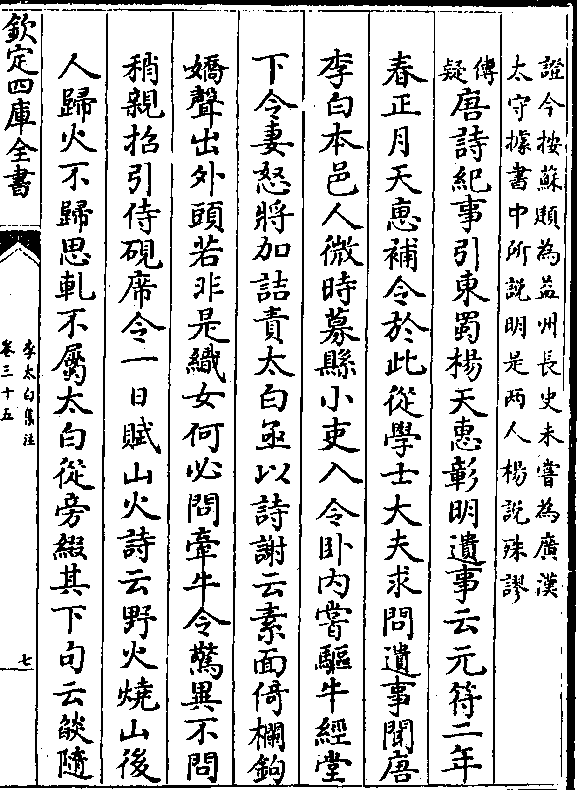 證今按蘇頲為益州長史未嘗為廣漢
太守據書中所說明是兩人楊說殊謬
傳疑唐詩紀事引東蜀楊天惠彰明遺事云元符二年
春正月天惠補令於此從學士大夫求問遺事聞唐
李白本邑人微時募縣小吏入令卧内嘗驅牛經堂
下令妻怒將加詰責太白亟以詩謝云素面倚欄鉤
嬌聲出外頭若非是織女何必問牽牛令驚異不問
稍親招引侍硯席令一日賦山火詩云野火燒山後
人歸火不歸思軋不屬太白從旁綴其下句云燄隨
欽定四庫全書
李太白集注
卷三十五
七